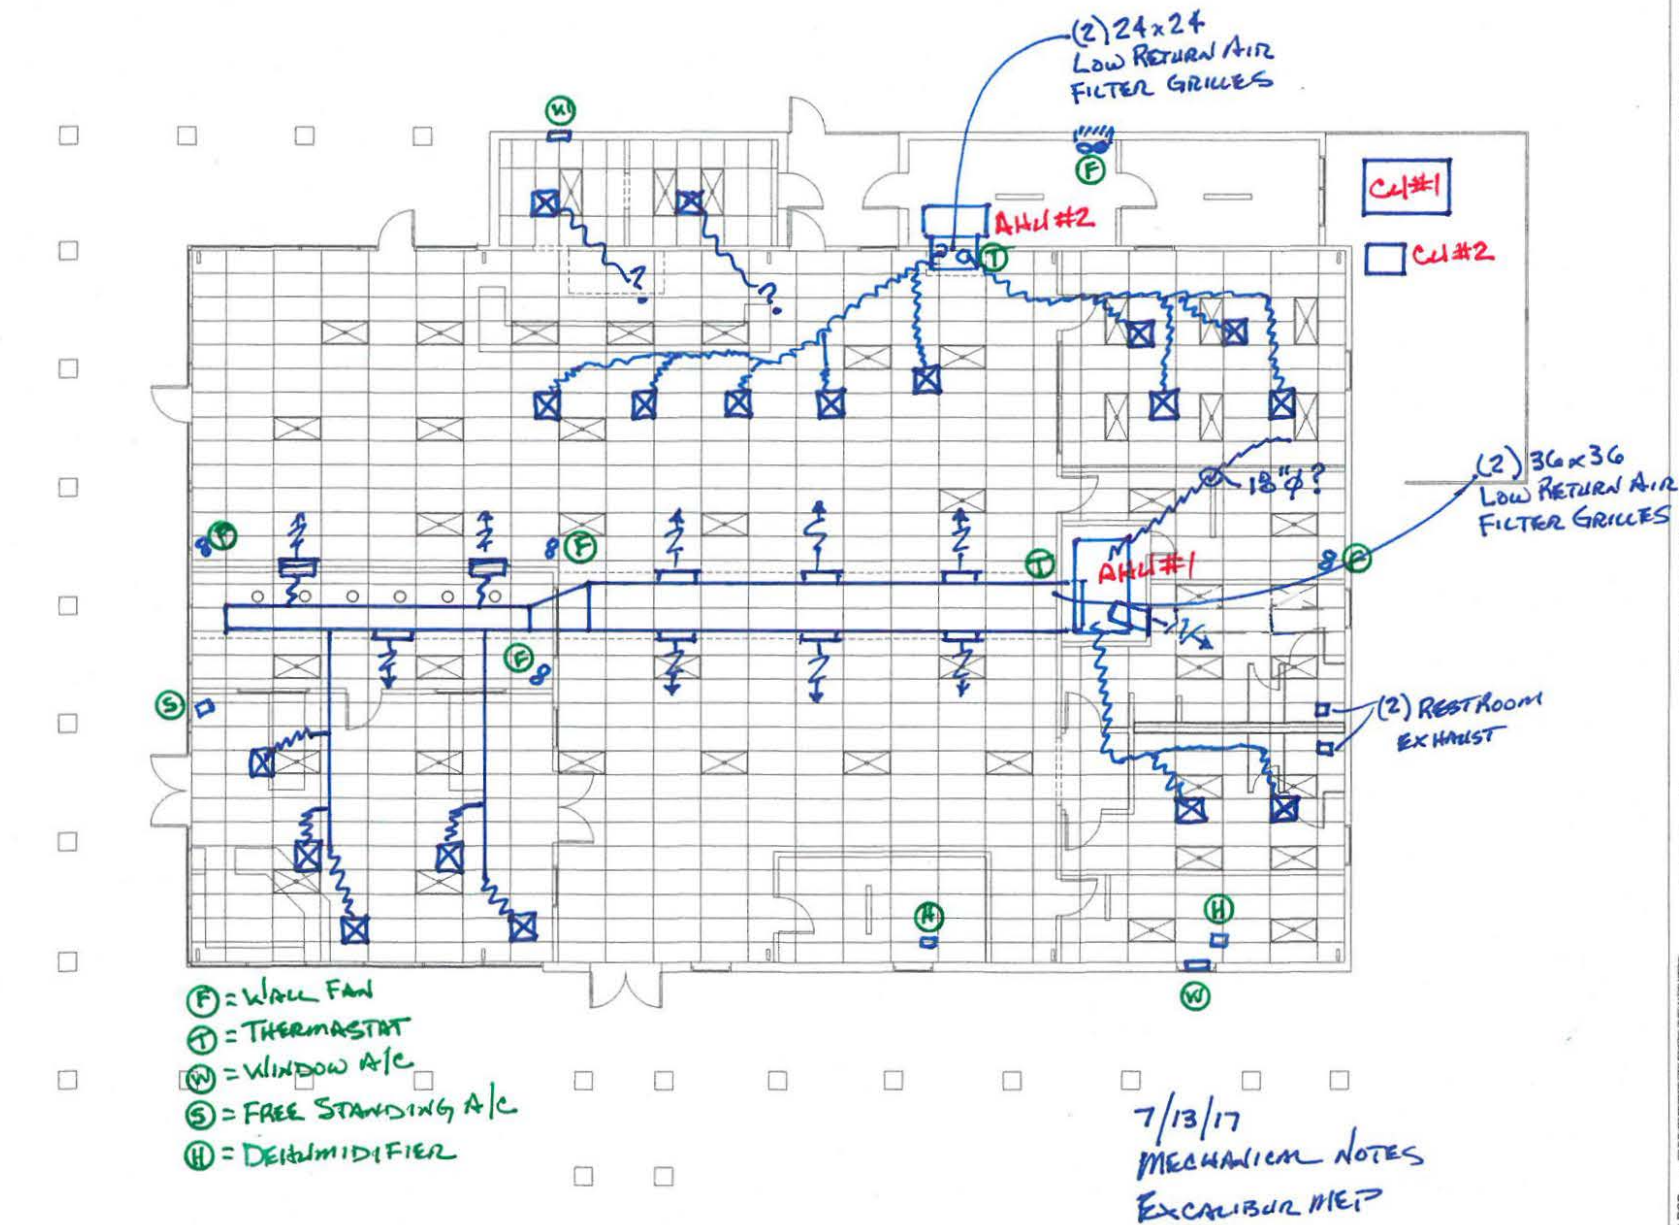 (2) 24x24
LOW RETURN AIR
FILTER GRILLES
W
F
AHU #2
T
CU#1
CU#2
?
?
18"φ?
(2) 36x36
LOW RETURN AIR
FILTER GRILLES
F
F
T
AHU #1
F
F
S
(2) RESTROOM
EXHAUST
H
H
W
F = WALL FAN
T = THERMASTAT
W = WINDOW A/C
S = FREE STANDING A/C
H = DEHUMIDIFIER
7/13/17
MECHANICAL NOTES
EXCALIBUR MEP